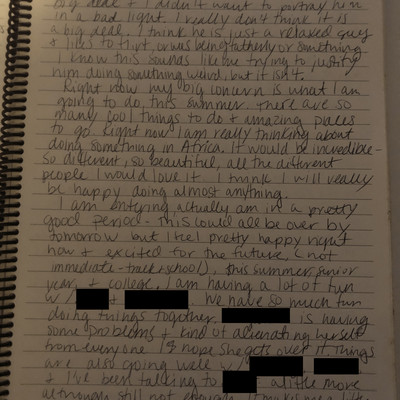 big deal & I didn't want to portray him
in a bad light. I really don't think it is
a big deal. I think he is just a relaxed guy
& likes to flirt, or was being fatherly or something
I know this sounds like me trying to justify
him doing something weird, but it isnt.
Right now my big concern is what I am
going to do, this summer. There are so
many cool things to do & amazing places
to go. Right now I am really thinking about
doing something in Africa. It would be incredible-
so different, so beautiful, all the different
people I would love it. I think I will really
be happy doing almost anything.
I am entering actually am in a pretty
good period - this could all be over by
tomorrow but I feel pretty happy right
now & excited for the future, (not
immediate - track & school), this summer, senior
year, & college. I am having a lot of fun
w/ & . We have so much fun
doing things together. is having
some problems & kind of alienating herself
from everyone I hope she gets over it. Things
are also going well w/
& I've been talking to a little more
although still not enough.